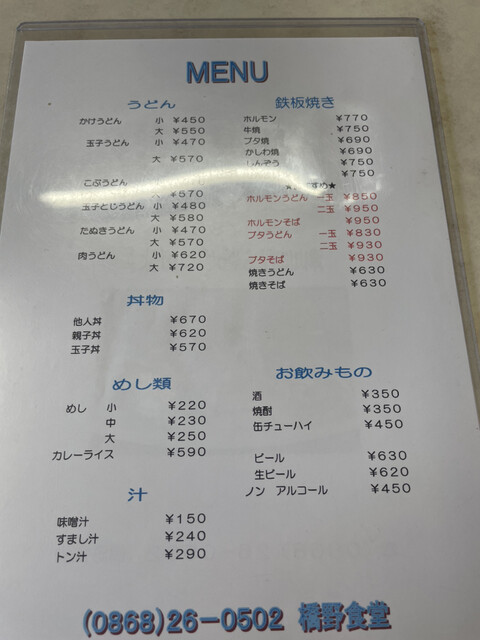 MENU
うどん
かけうどん 小 ¥450
大 ¥550
玉子うどん 小 ¥470
大 ¥570
こぶうどん
大 ¥570
玉子とじうどん 小 ¥480
大 ¥580
たぬきうどん 小 ¥470
大 ¥570
肉うどん 小 ¥620
大 ¥720
丼物
他人丼 ¥670
親子丼 ¥620
玉子丼 ¥570
めし類
めし 小 ¥220
中 ¥230
大 ¥250
カレーライス ¥590
汁
味噌汁 ¥150
すまし汁 ¥240
トン汁 ¥290
鉄板焼き
ホルモン ¥770
牛焼 ¥750
ブタ焼 ¥690
かしわ焼 ¥690
しんぞう ¥750
¥750
すめ★
ホルモンうどん 一玉 ¥850
二玉 ¥950
ホルモンそば ¥950
ブタうどん 一玉 ¥830
二玉 ¥930
ブタそば ¥930
焼きうどん ¥630
焼きそば ¥630
お飲みもの
酒 ¥350
焼酎 ¥350
缶チューハイ ¥450
ビール ¥630
生ビール ¥620
ノン アルコール ¥450
(0868)26-0502 橋野食堂